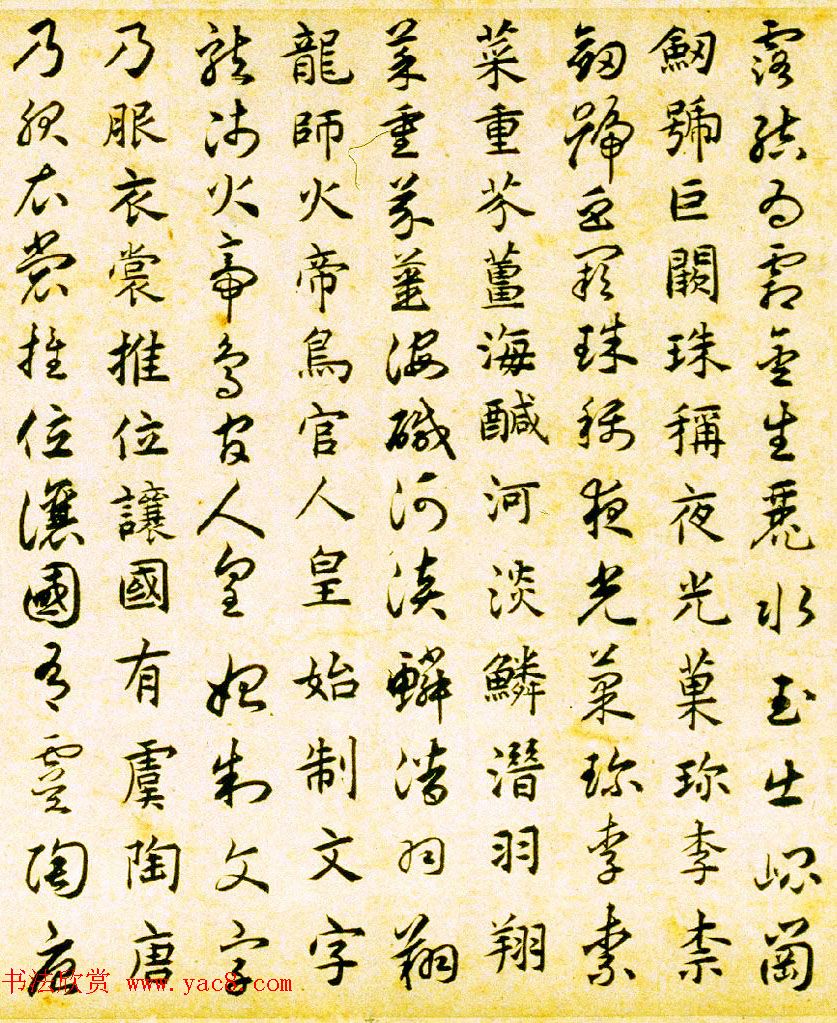 露結為霜金生麗水玉出崐崗
劒號巨闕珠稱夜光菓珍李柰
劒號巨闕珠稱夜光菓珍李柰
菜重芥薑海醎河淡鱗潛羽翔
菜重芥薑海醎河淡鱗潛羽翔
龍師火帝鳥官人皇始制文字
龍師火帝鳥官人皇始制文字
乃服衣裳推位讓國有虞陶唐
乃服衣裳推位讓國有虞陶唐
书法欣赏 www.yac8.com